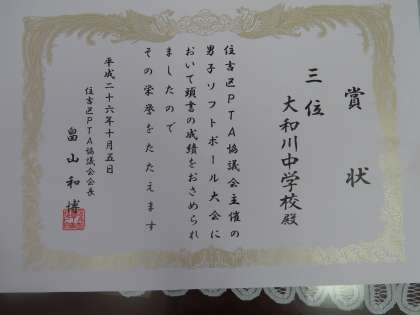 賞状
三位
大和川中学校殿
住吉区PTA協議会主催の
男子ソフトボール大会に
おいて頭書の成績をおさめられ
ましたので
その栄誉をたたえます
平成二十六年十月五日
住吉区PTA協議会会長
畠山和博